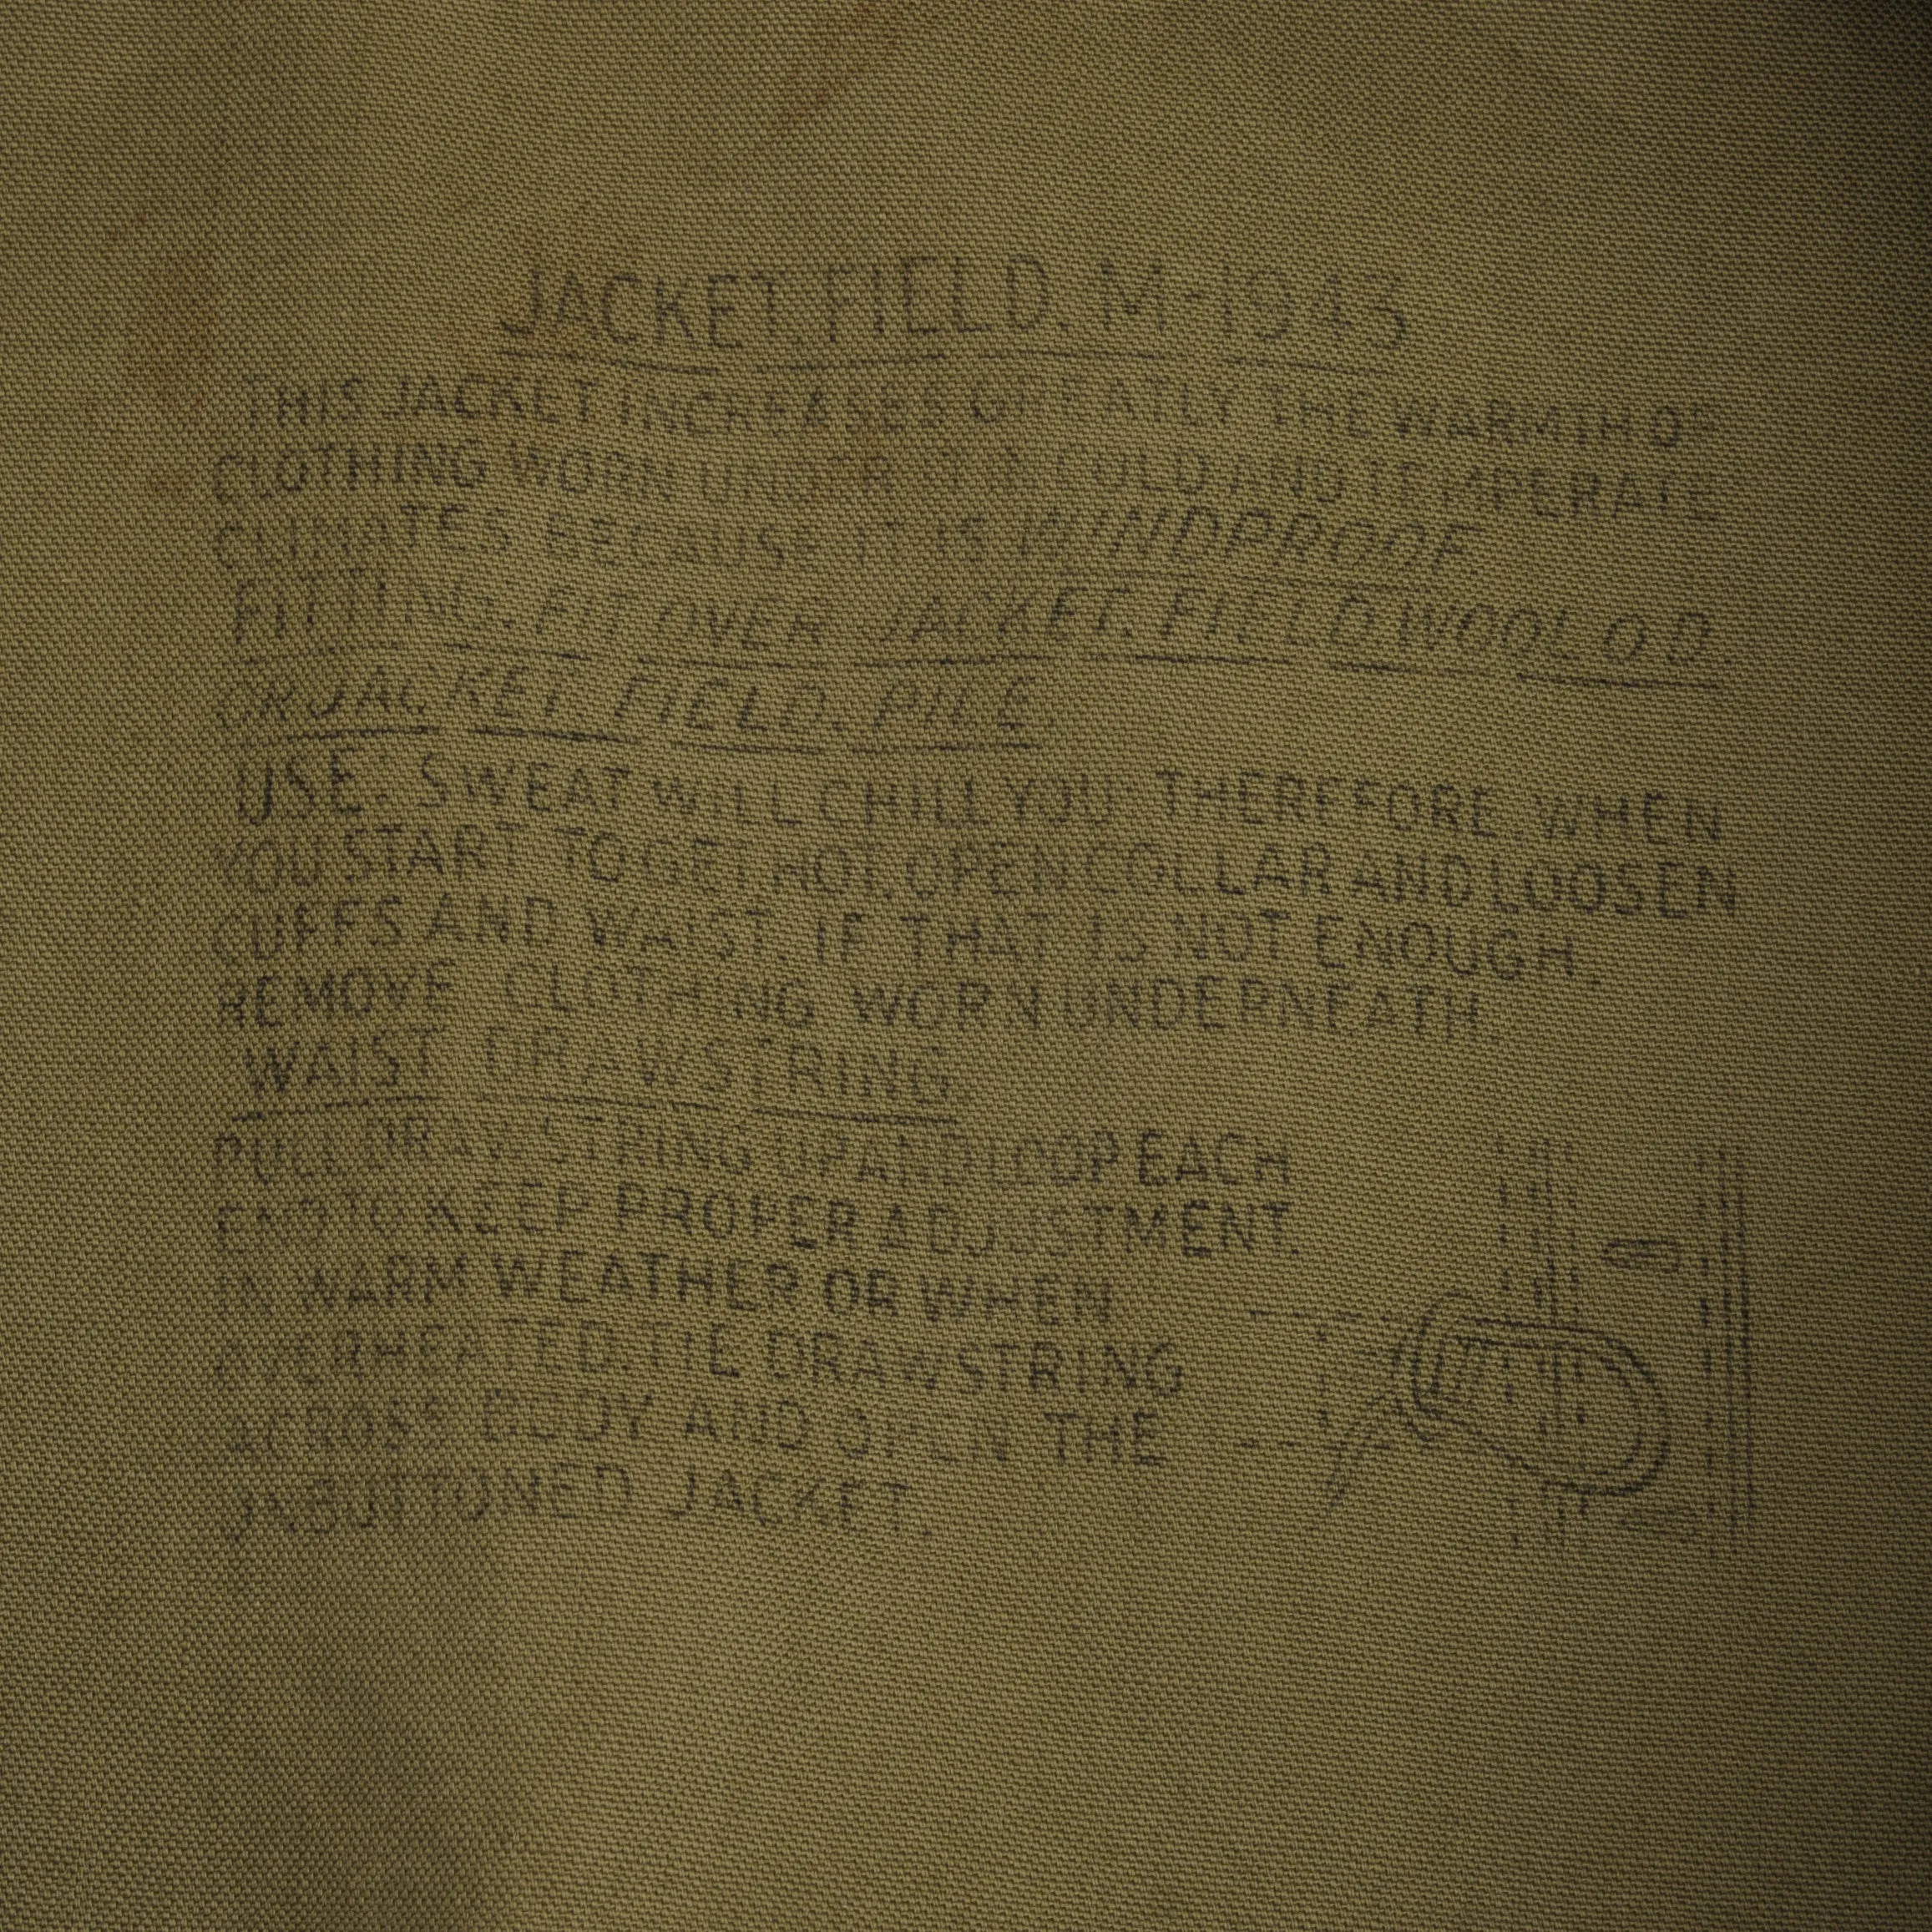 JACKET, FIELD, M-1943
THIS JACKET INCREASES GREATLY THE WARMTH OF
CLOTHING WORN UNDER IT IN COLD AND TEMPERATE
CLIMATES BECAUSE IT IS WINDPROOF.
FITTING: FIT OVER JACKET, FIELD, WOOL O.D.
OR JACKET, FIELD, PILE.
USE: SWEAT WILL CHILL YOU: THEREFORE, WHEN
YOU START TO GET HOT, OPEN COLLAR AND LOOSEN
CUFFS AND WAIST. IF THAT IS NOT ENOUGH,
REMOVE CLOTHING WORN UNDERNEATH
WAIST DRAWSTRING
PULL DRAWSTRING UP AND LOOP EACH
END TO KEEP PROPER ADJUSTMENT.
IN WARM WEATHER OR WHEN
OVERHEATED, TIE DRAWSTRING
ACROSS BODY AND OPEN THE
UNBUTTONED JACKET.